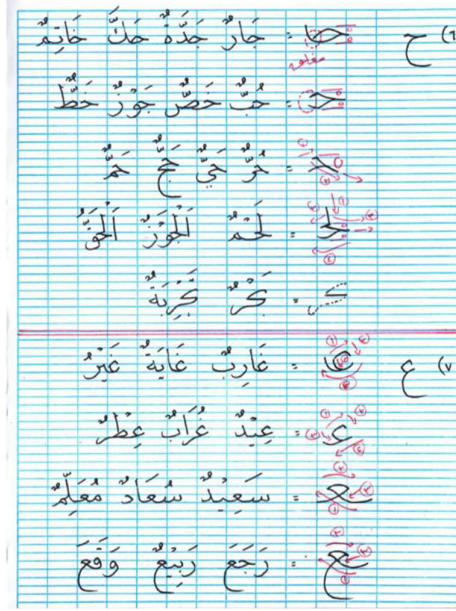 ٦) ح حـ = جَارٌ جَدَّةٌ حَكَّ خَاتِمٌ
مغلقة
حـ = حُبٌّ خَصٌّ جَوْزٌ خَطٌّ
حـ = حُرٌّ حَيٌّ حَجٌّ حَمٌّ
لحـ = لَحْمٌ اَلْجَوْزُ اَلْحَقُّ
ـحـ = بَحْرٌ تَجْرِبَةٌ
٧) ع عـ = غَارِبٌ غَايَةٌ غَيْرُ
عـ = عِيْدٌ غُرَابٌ عِطْرٌ
ـعـ = سَعِيْدٌ سُعَادٌ مُعَلِّمٌ
ـع = رَجَعَ رَبِيْعٌ وَقَعَ